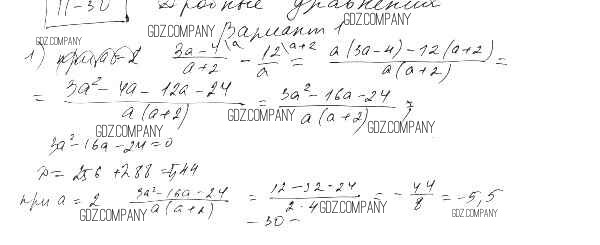 П-30 Дробные уравнения
GDZ.COMPANY GDZ.COMPANY GDZ.COMPANY
Вариант 1
1) (3a-4)/(a+2) \a - 12/a \a+2 = (a(3a-4)-12(a+2))/(a(a+2)) =
= (3a²-4a-12a-24)/(a(a+2)) = (3a²-16a-24)/(a(a+2)) ;
GDZ.COMPANY GDZ.COMPANY GDZ.COMPANY
3a²-16a-24=0
D = 256 + 288 = 544
при a = 2 (3a²-16a-24)/(a(a+2)) = (12-32-24)/(2·4) = - 44/8 = -5,5
GDZ.COMPANY GDZ.COMPANY GDZ.COMPANY
- 30 -